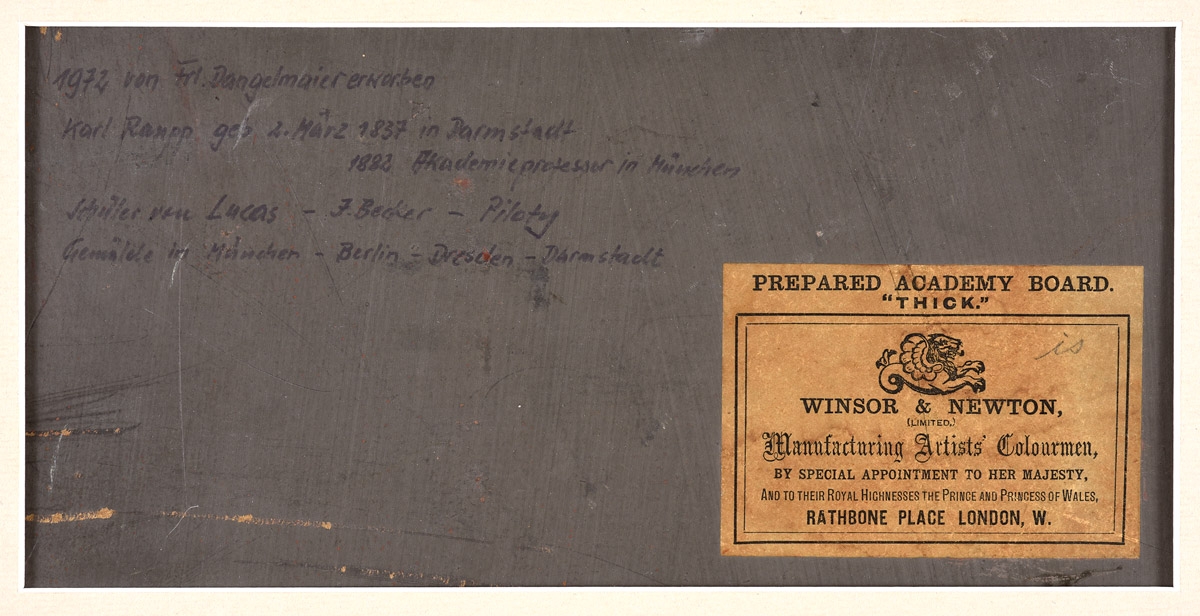 1972 von Frl. Dangelmaier erworben
Karl Raupp geb 2. März 1837 in Darmstadt
1882 Akademieprofessor in München
Schüler von Lucas - J. Becker - Piloty
Gemälde in München - Berlin - Dresden - Darmstadt
PREPARED ACADEMY BOARD.
"THICK."
is
WINSOR & NEWTON,
(LIMITED.)
Manufacturing Artists' Colourmen,
BY SPECIAL APPOINTMENT TO HER MAJESTY,
AND TO THEIR ROYAL HIGHNESSES THE PRINCE AND PRINCESS OF WALES,
RATHBONE PLACE LONDON, W.